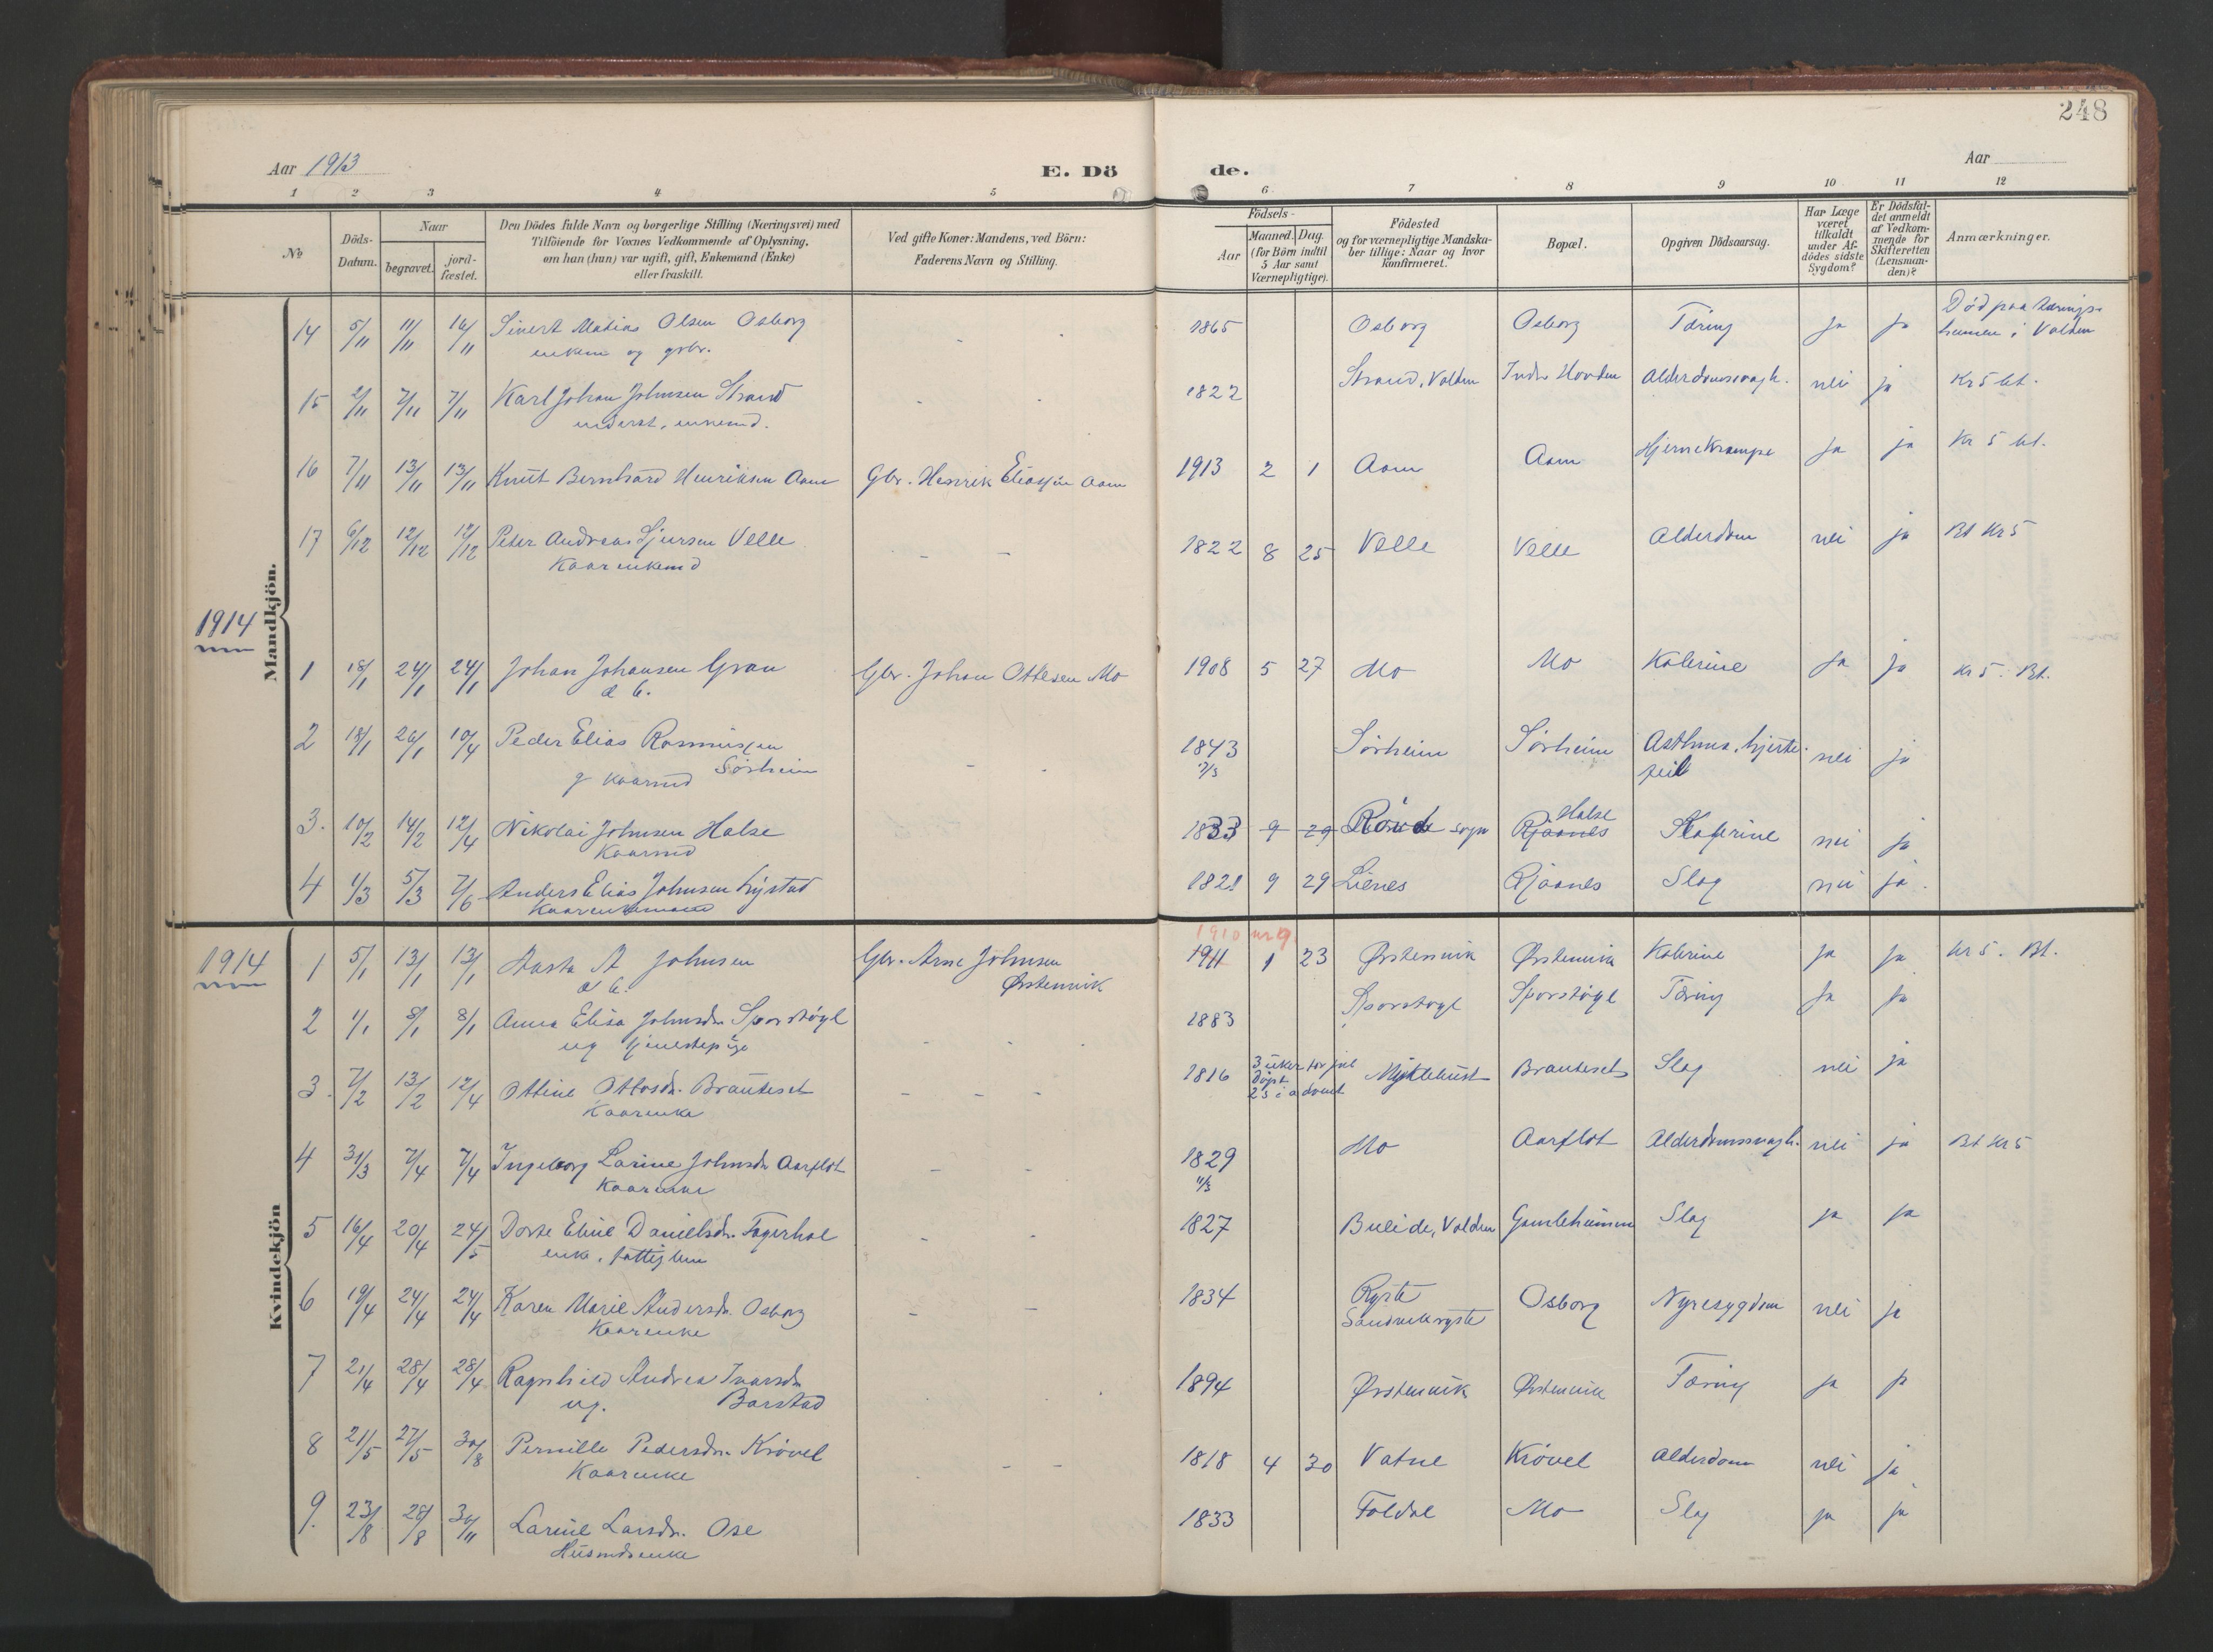 248
Aar 1913
E. Dö
de.
Aar
1 2 3 4 5 6 7 8 9 10 11 12
№
Döds-
Datum.
Naar
begravet.
jord-
fæstet.
Den Dödes fulde Navn og borgerlige Stilling (Næringsvei) med
Tilföiende for Voxnes Vedkommende af Oplysning,
om han (hun) var ugift, gift, Enkemand (Enke)
eller fraskilt.
Ved gifte Koner: Mandens, ved Börn:
Faderens Navn og Stilling.
Födsels-
Aar
Maaned. Dag.
(for Börn indtil
5 Aar samt
Værnepligtige).
Födested
og for værnepligtige Mandska-
ber tillige: Naar og hvor
konfirmeret.
Bopæl.
Opgiven Dödsaarsag.
Har Læge
været
tilkaldt
under Af-
dödes sidste
Sygdom?
Er Dödsfal-
det anmeldt
af Vedkom-
mende for
Skifteretten
(Lensman-
den)?
Anmærkninger.
Mandkjön.
14 5/11 11/11 16/11 Sivert Matias Olsen Osborg - - 1865 Osborg Osborg Tæring ja ja Död paa tærings-
enkem og gbr. i Volden
15 2/11 7/11 7/11 Karl Johan Johnsen Strand - - 1822 Strand, Volden Indre Hovden Alderdomssvagh. nei ja Kr 5 bt.
inderst, enkemd.
16 7/11 13/11 13/11 Knut Bernhard Henriksen Aam Gbr. Henrik Eliassen Aam 1913 2 1 Aam Aam Hjernekrampe ja ja Kr 5 bt.
17 6/12 12/12 12/12 Peter Andreas Sjursen Velle - - 1822 8 25 Velle Velle Alderdom nei ja Bt Kr 5
Kaarenkemd
1914
1 18/1 24/1 24/1 Johan Johansen Gran Gbr. Johan Ottesen Mo 1908 5 27 Mo Mo Kolerine ja ja Kr 5. Bt.
d b.
2 18/1 26/1 10/4 Peder Elias Rasmussen - - 1843 Sörheim Sörheim Asthma, hjerte- nei ja
g kaarmd Sörheim feil
3. 10/2 14/2 12/4 Nikolai Johnsen Halse 1833 9 29 Rövde sogn Rjaanes Halse nei ja
Kaarmd
4 1/3 5/3 7/6 Anders Elias Johnsen Lystad 1821 9 29 Lienes Rjaanes Slag nei ja.
Kaarenkemand
Kvindekjön
1914
1910 nr 9
1 5/1 13/1 13/1 Aasta A Johnsen Gbr. Arne Johnsen 1911 1 23 Ørstenvik Ørstenvik Kolerine ja ja Kr 5. Bt.
d b. Ørstenvik
2 1/1 8/1 8/1 Anna Elisa Johnsdr Sporstöyl - - 1883 Sporstöyl Sporstöyl Tæring ja ja
ug tjenestepige
3. 7/2 13/2 12/4 Ottine Ottosdr. Brauteset - - - 1816 3 uker för jul Myklebust Brauteset Slag nei ja
Kaarenke döpt
2 s i advent
4 31/3 7/4 7/4 Ingeborg Larine Johnsdr Aarflot - - 1829 Mo Aarflot Alderdomssvagh. nei ja Bt Kr 5
Kaarenke 11/3
5 16/4 20/4 24/5 Dorte Eline Danielsdr. Fagerhol - - 1827 Bueide, Volden Gamleheimen Slag ja ja
enke, fattiglem
6 19/4 24/4 24/4 Karen Marie Andersdr. Osborg - - 1834 Ryste Osborg Nyresygdom nei ja
Kaarenke
7 21/4 28/4 28/4 Ragnhild Andrea Ivarsdr 1894 Ørstenvik Ørstenvik Tæring ja ja
ug. Barstad
8 21/5 27/5 30/8 Pernille Pedersdr. Krövel - - 1818 4 30 Vatne Krövel Alderdom nei ja
Kaarenke
9. 23/8 28/8 30/11 Larine Larsdr. Ose 1833 Foldal Mo Slag ja ja
Husmdsenke